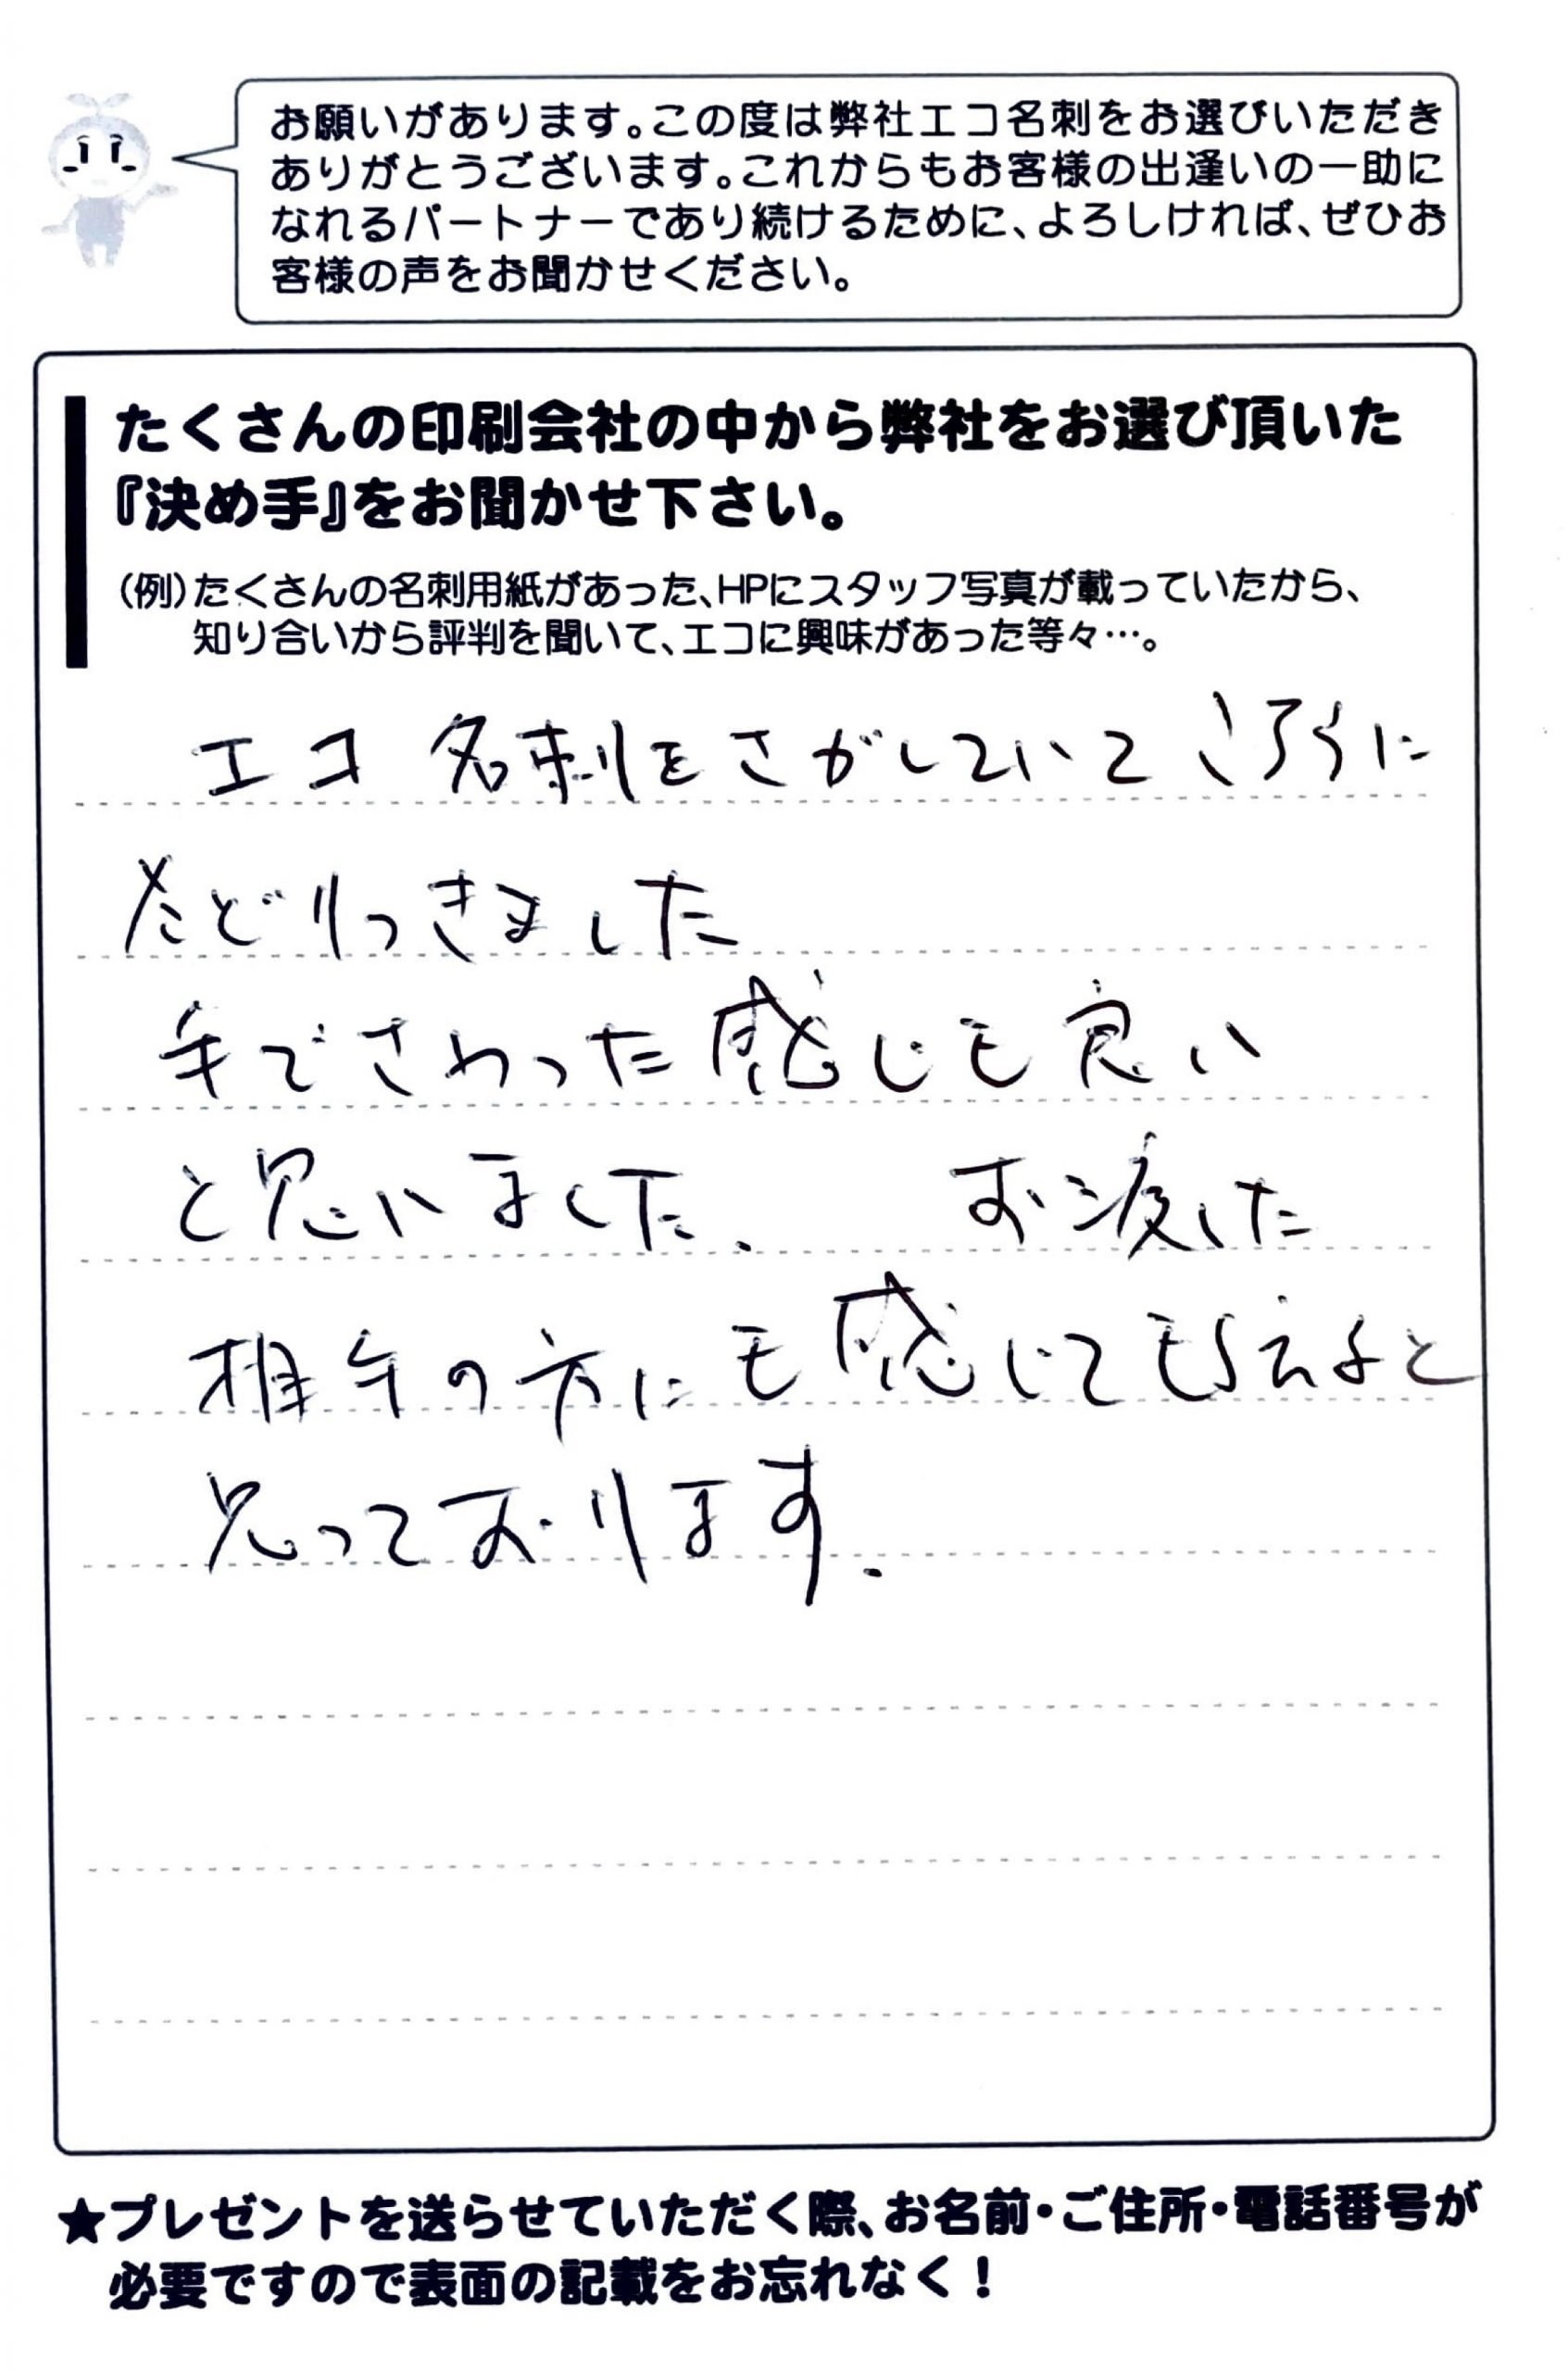 お願いがあります。この度は弊社エコ名刺をお選びいただき
ありがとうございます。これからもお客様の出逢いの一助に
なれるパートナーであり続けるために、よろしければ、ぜひお
客様の声をお聞かせください。
たくさんの印刷会社の中から弊社をお選び頂いた
『決め手』をお聞かせ下さい。
(例)たくさんの名刺用紙があった、HPにスタッフ写真が載っていたから、
知り合いから評判を聞いて、エコに興味があった等々…。
エコ名刺をさがしていて
たどりつきました
手でさわった感じも良い
と思いました. お渡した
相手の方にも感じてもらえると
思っております.
★プレゼントを送らせていただく際、お名前・ご住所・電話番号が
必要ですので表面の記載をお忘れなく！